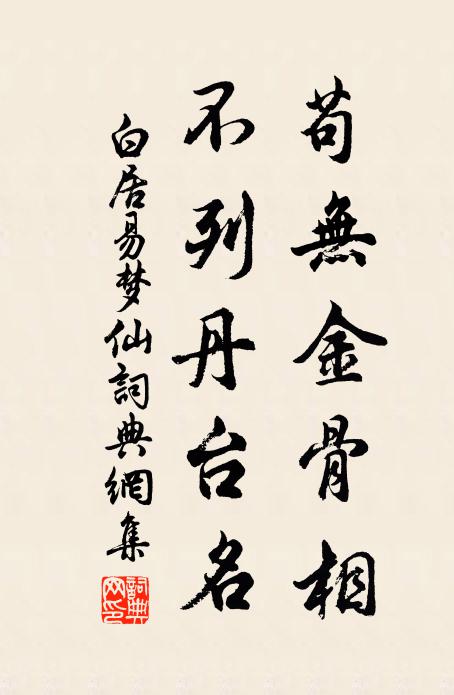 苟無金骨相
不列丹台名
白居易梦仙詞典網集
詞典
网印